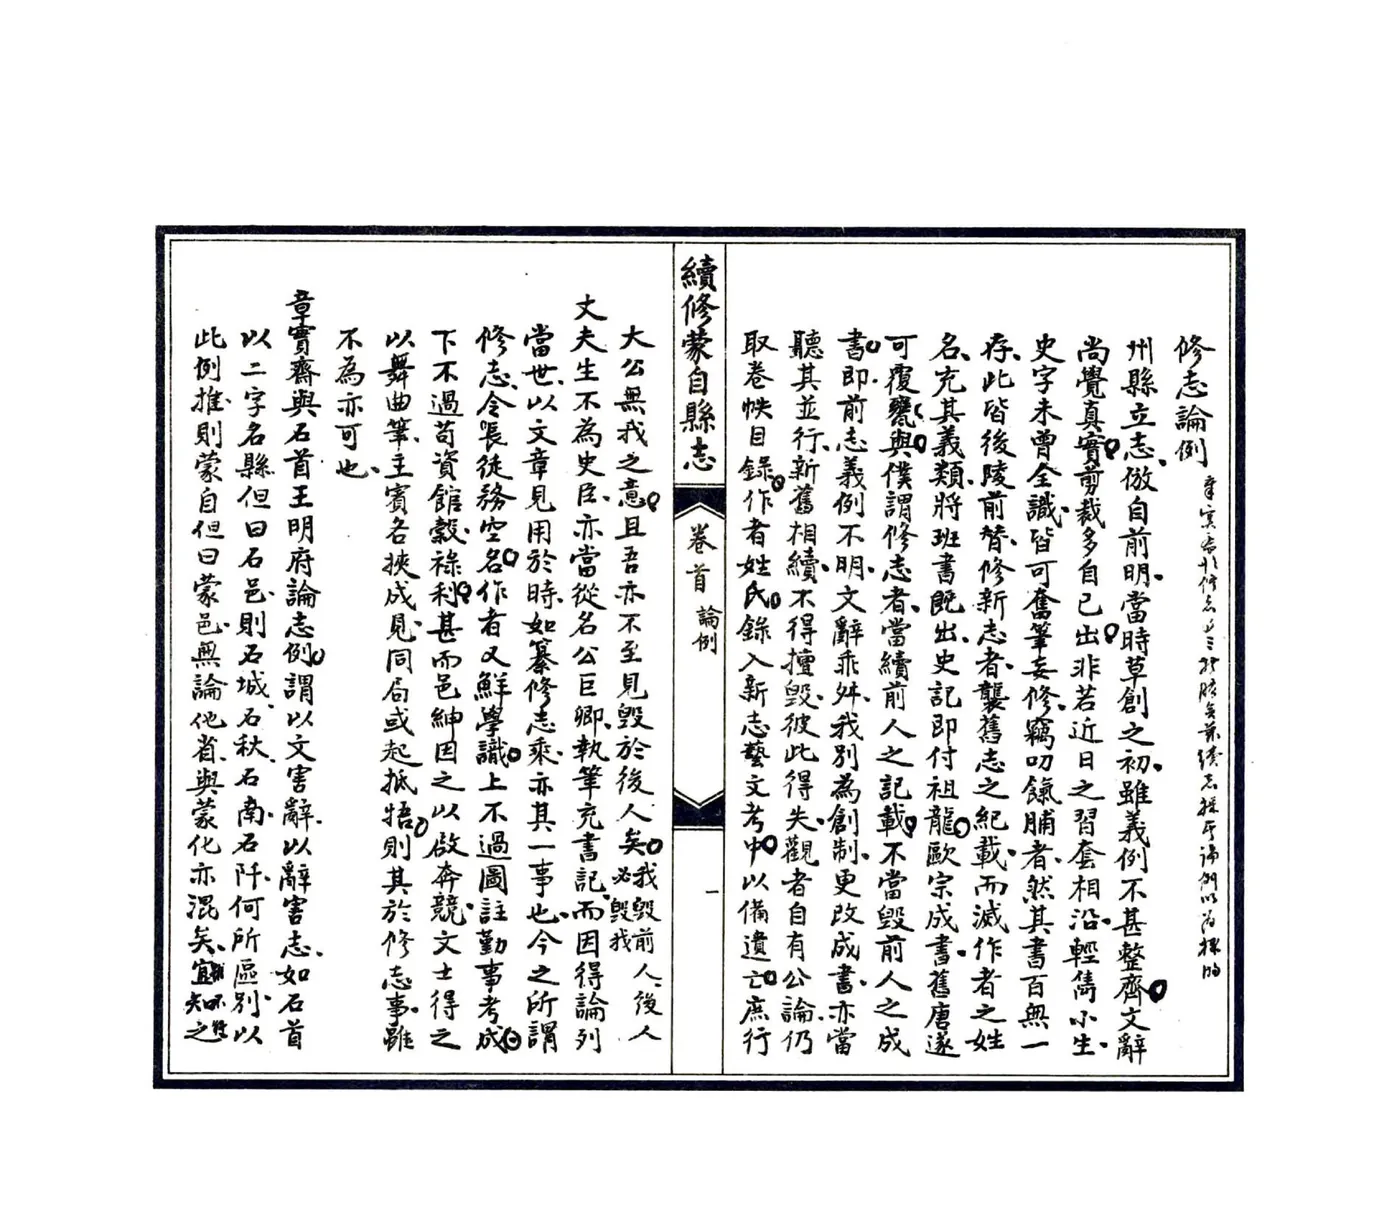 修志論例
州縣立志倣自前明當時草創之初雖義例不甚整齊文辭
尚覺真實剪裁多自己出非若近日之習套相沿輕雋小生
史字未曾全識皆可奮筆妄修竊叨餼脯者然其書百無一
存此皆後陵前替修新志者襲舊志之紀載而滅作者之姓
名充其義類將班書既出史記即付祖龍歐宗成書舊唐遂
可覆甕與僕謂修志者當續前人之記載不當毀前人之成
書即前志義例不明文辭乖舛我別為創制更改成書亦當
聽其並行新舊相續不得擅毀彼此得失觀者自有公論仍
取卷帙目錄作者姓氏錄入新志藝文考中以備遺亡庶行
續修蒙自縣志
卷首 論例
一
大公無我之意且吾亦不至見毀於後人矣我毀前人後人
必毀我
丈夫生不為史臣亦當從名公巨卿執筆充書記而因得論列
當世以文章見用於時如纂修志乘亦其一事也今之所謂
修志令長徒務空名作者又鮮學識上不過圖註勤事考成
下不過苟資館穀祿利甚而邑紳因之以啟奔競文士得之
以舞曲筆主賓各挾成見同局或起抵牾則其於修志事雖
不為亦可也
章實齋與石首王明府論志例謂以文害辭以辭害志如石首
以二字名縣但曰石邑則石城石秋石南石阡何所區別以
此例推則蒙自但曰蒙邑無論他省與蒙化亦混矣宜知之